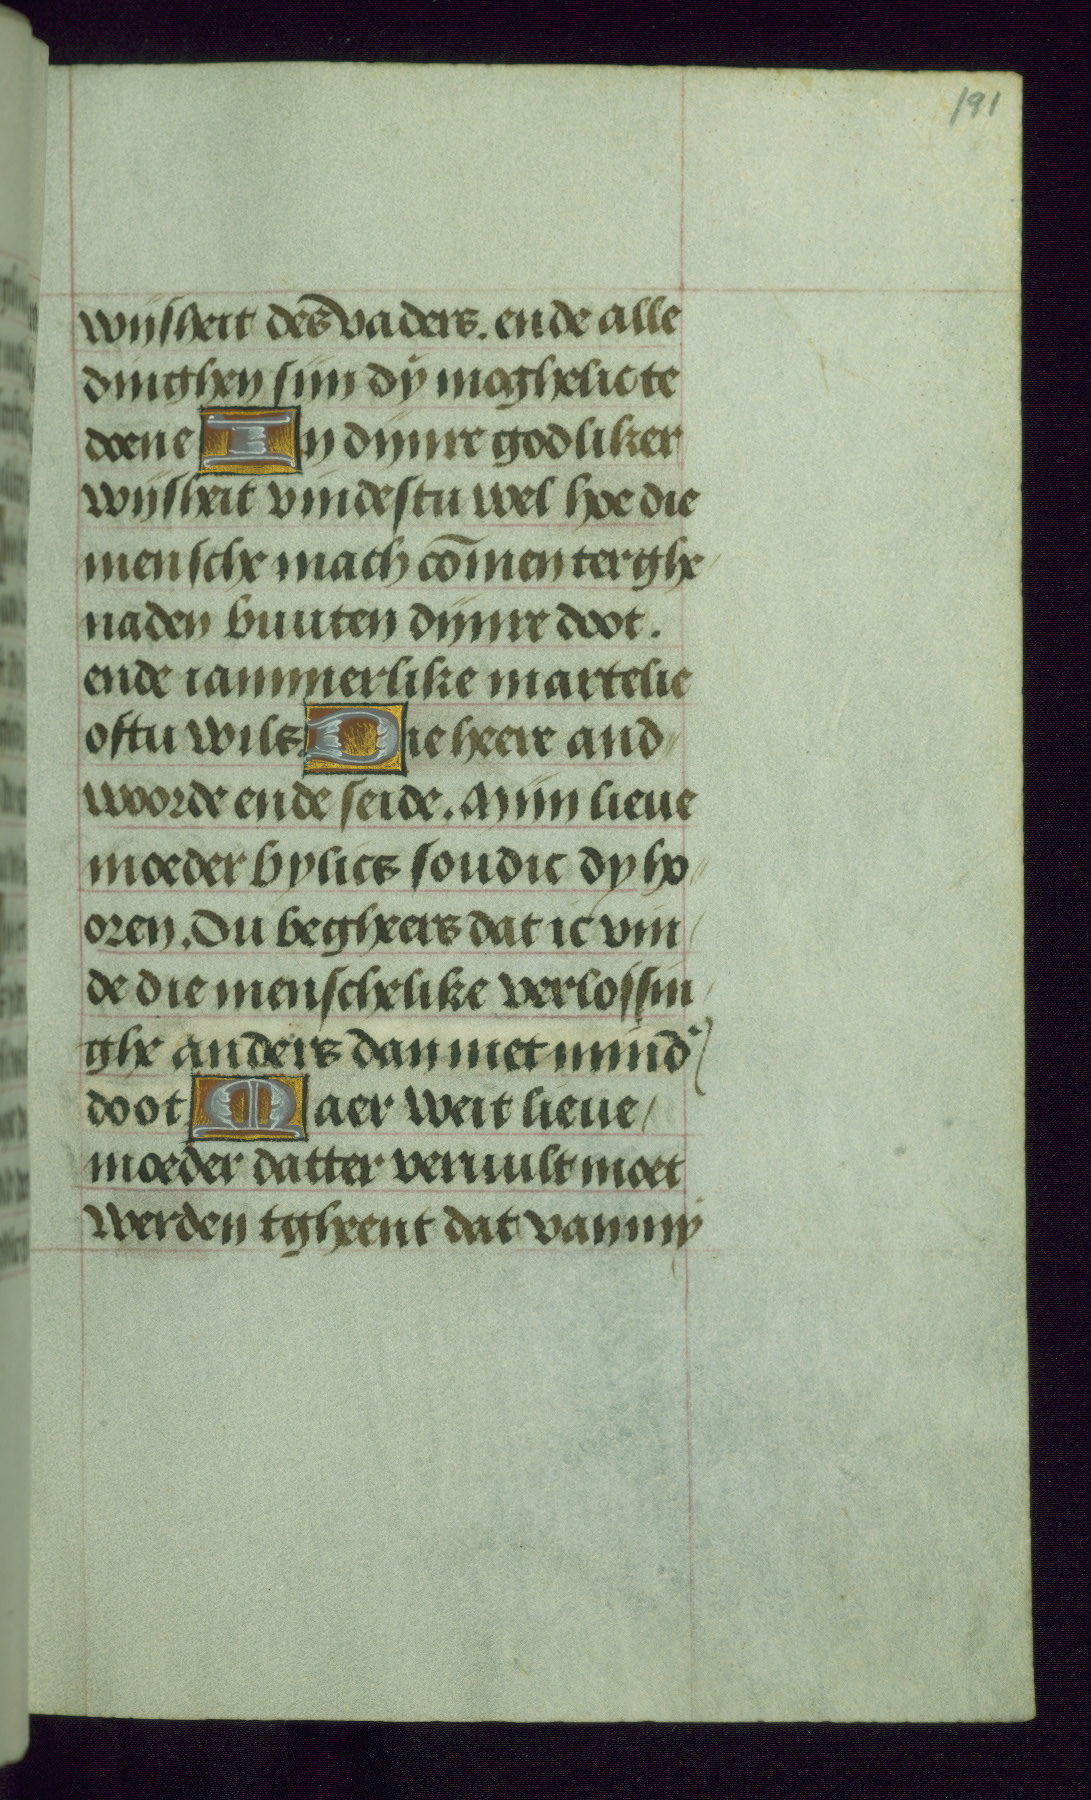 191
wijsheit des vaders. ende alle
dinghen sijn dy moghelic te
doene In dijnre godliker
wijsheit vindestu wel hoe die
mensche mach cōmen ter ghe
naden buuten dijnre doot.
ende iammerlike martelie
oftu wils. Die heere and
woorde ende seide. Mijn lieue
moeder bylics soudic dy ho
oren. Du begheers dat ic vin
de die menschelike verlossin
ghe anders dan met mind'
doot Maer weit lieue
moeder datter veruult moet
werden tgheent dat van my